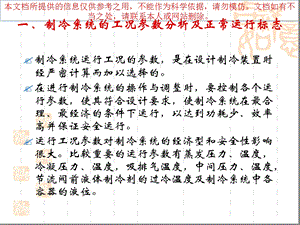 本文档所提供的信息仅供参考之用，不能作为科学依据，请勿模仿。文档如有不
当之处，请联系本人或网站删除。
一、制冷系统的工况参数分析及正常运行标志
制冷系统运行工况的参数，是在设计制冷装置时
经严密计算两加以选择的。
在进行制冷系统的操作与调整时，要控制各个运
行参数，使其符合设计要求，使制冷系统在最合
理、最经济的条件下运行，以达到功耗少、效率
高并保证安全运行。
运行工况参数对制冷系统的经济型和安全性影响
很大。比较重要的运行参数有蒸发压力、温度，
冷凝压力、温度，吸排气温度，中间压力、温度，
节流阀前液体制冷剂的过冷温度及制冷系统中各
容器的液位。